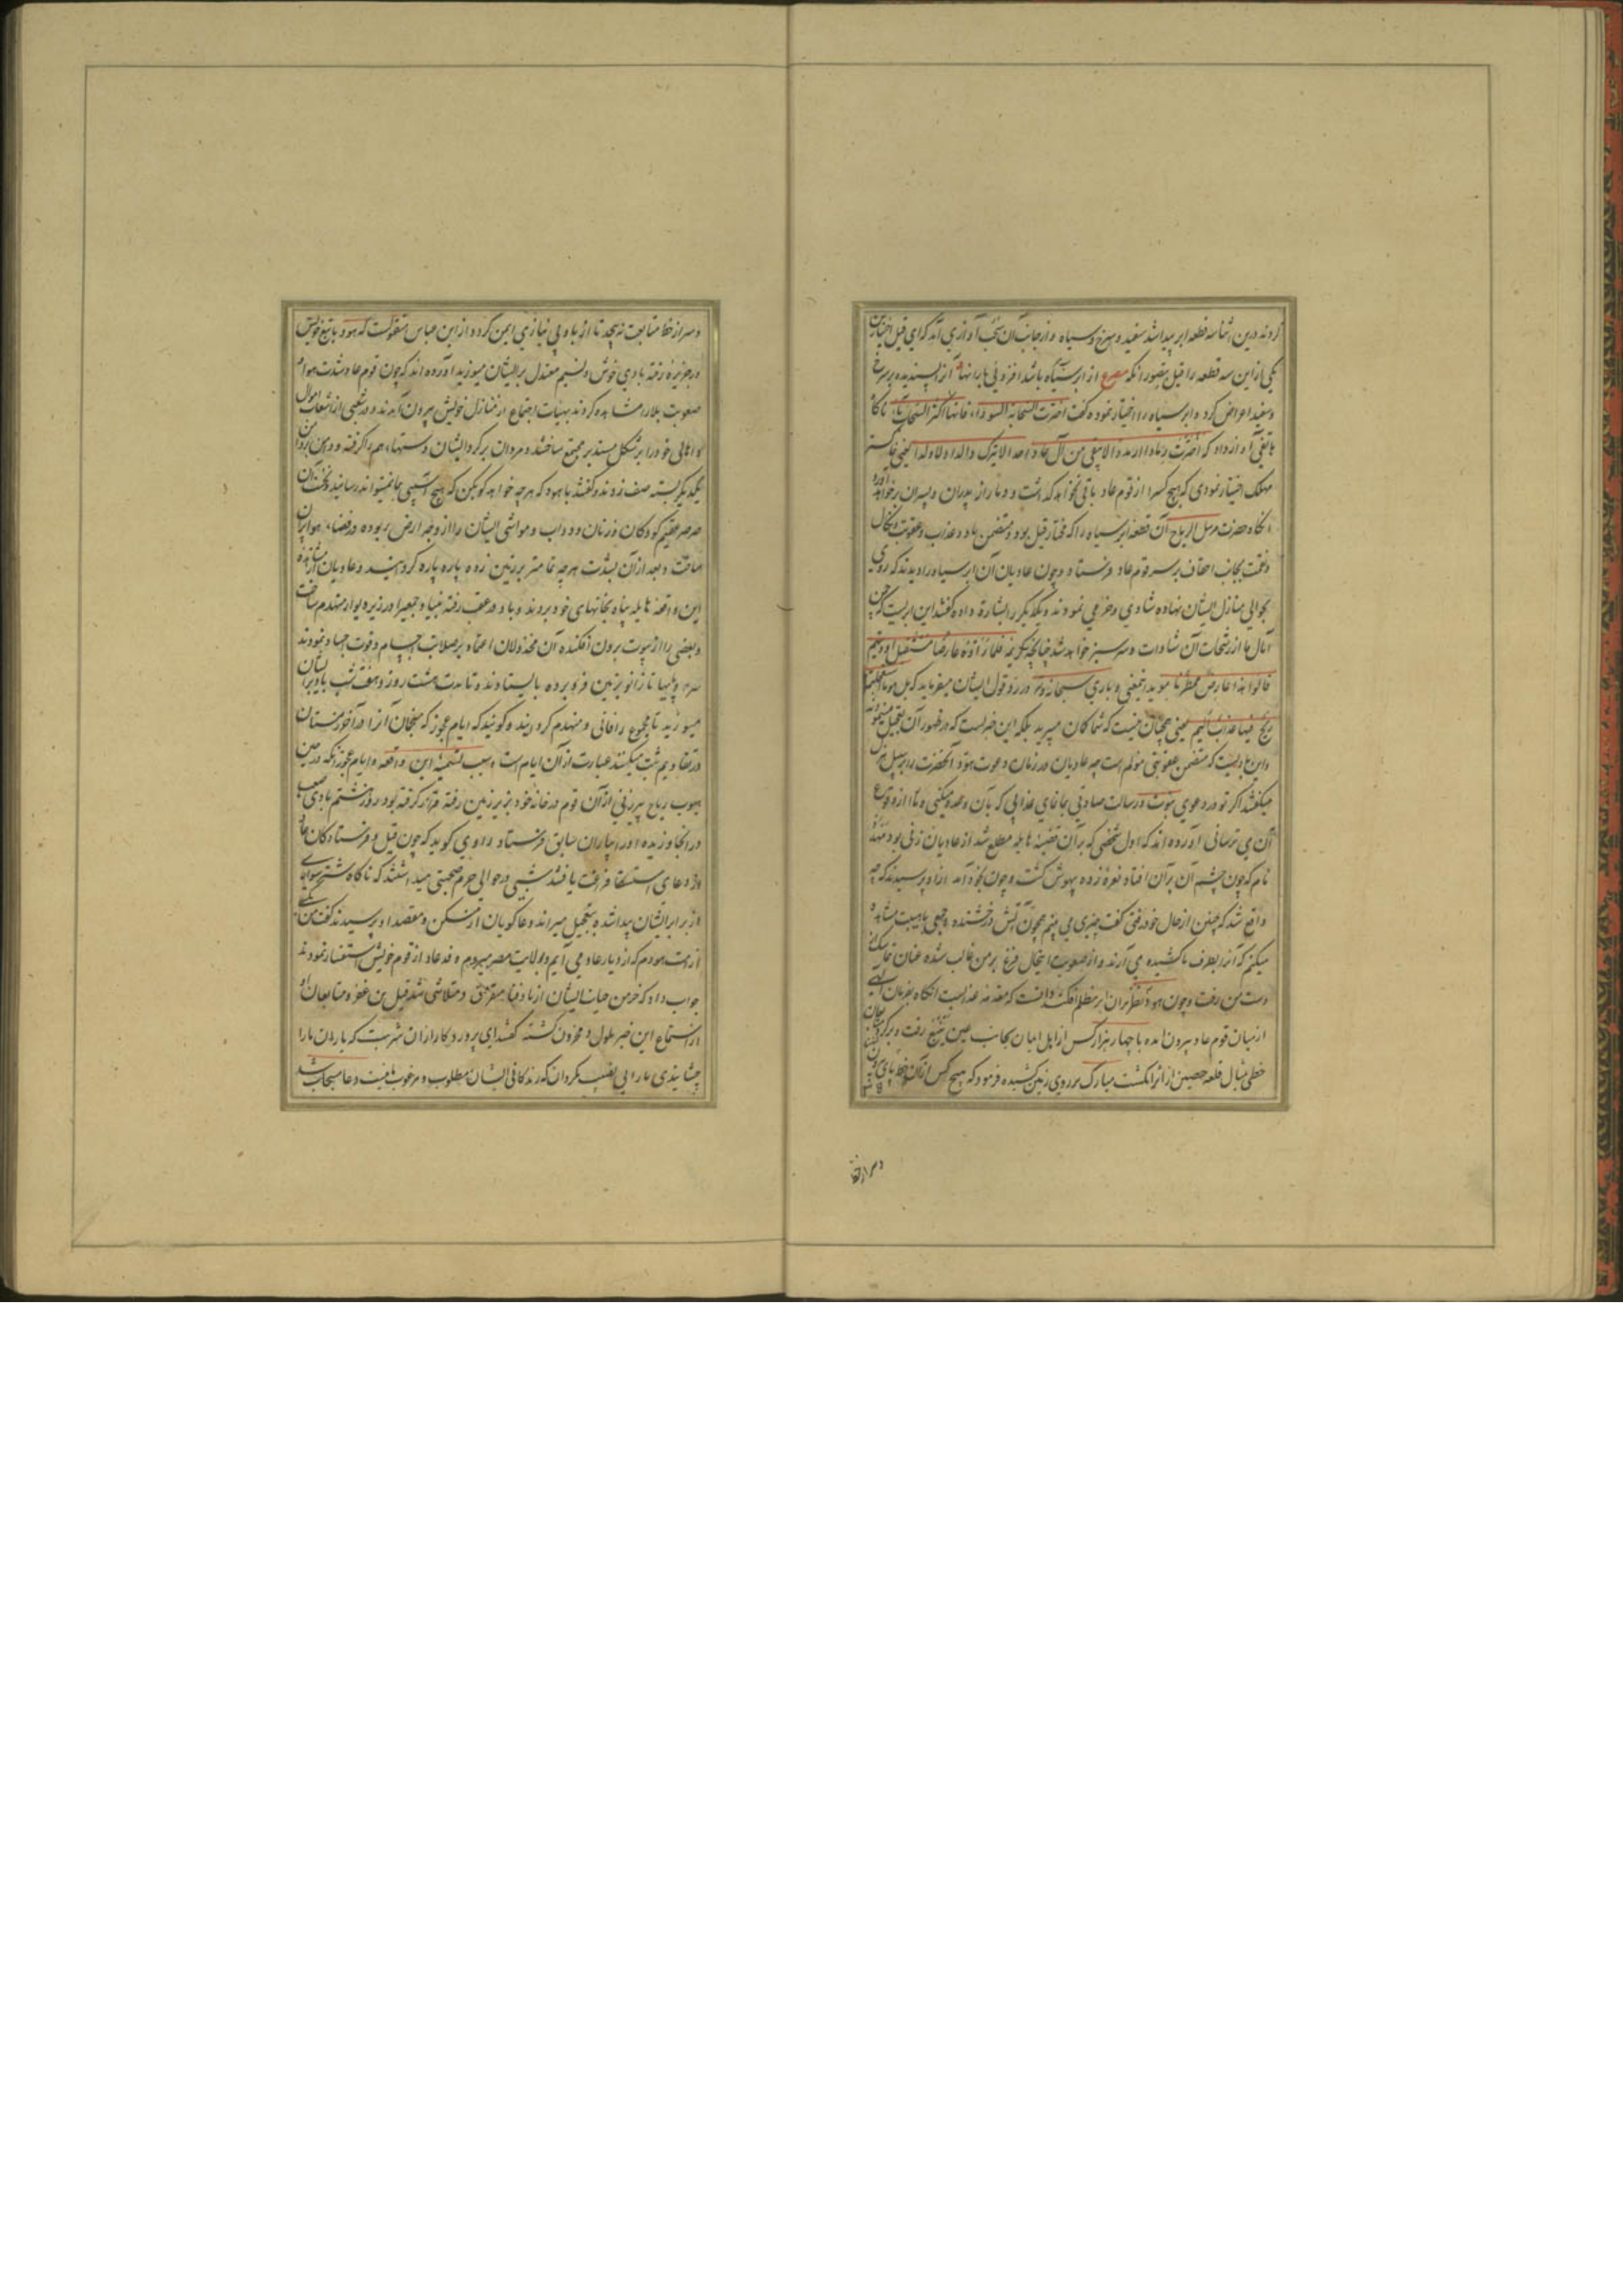 کردند درین اثنا سه قطعه ابر پیدا شد سفید و سرخ و سیاه و از جانب آن سحب آوازی آمد که ای قیل اختیار کن
یکی از این سه قطعه را قیل بتصور آنکه مصرع از ابر سیاه باشد افزونی بارانها از ابر سرخ
و سفید اعراض کرد و ابر سیاه را اختیار نموده گفت اخترت السحابة السوداء فانها اکثر السحاب ماء ناگاه
هاتفی آواز داد که اخترت رمادا ارمدا لا یبقی من آل عاد احدا لا یترک والدا و لا ولدا یعنی خاکستر
مهلک اختیار نمودی که هیچ کس را از قوم عاد باقی نخواهد گذاشت و دمار از پدران و پسران بر خواهد آورد
آنگاه حضرت مرسل الریاح آن قطعه ابر سیاه را که مختار قیل بود و متضمن باد و عذاب و عقوبت و نکال
و نقمت بجانب احقاف بر سر قوم عاد فرستاد و چون عادیان آن ابر سیاه را دیدند که روی
بحوالی منازل ایشان نهاده شادی و خرمی نمودند و یکدیگر را بشارة داده گفتند این ابریست که چمن
آمال ما از رشحات آن شاداب و سرسبز خواهد شد چنانچه کریمه فلما رأوه عارضا مستقبل اودیتهم
قالوا هذا عارض ممطرنا موید اینمعنی و باری سبحانه در رد قول ایشان میفرماید که بل هو ما استعجلتم به
ریح فیها عذاب الیم یعنی همچنان نیست که شما گمان میبرید بلکه این خبریست که در ظهور آن تعجیل مینمود
و این بادیست که متضمن عقوبتی مولم است چه عادیان در زمان دعوت هود آنحضرت را بر سبیل هزل
میگفتند اگر تو در دعوی نبوت و رسالت صادقی بما نمای عذابی که بآن وعده میکنی و ما را از وقوع
آن می ترسانی آورده اند که اول شخصی که بر آن قضیه هایله مطلع شد از عادیان زنی بود مهدد
نام که چون چشم آن بر آن افتاد نعره زده بیهوش گشت و چون بخود آمد از او پرسیدند که چه
واقع شد که چنین از حال خود رفتی گفت چیزی می بینم همچون آتش درخشنده و جمعی باهیبت مشاهده
میکنم که آنرا بطرف ما کشیده می آرند و از صعوبت اینحال فزع بر من غالب شده عنان تماسک از
دست من رفت و چون هود نظر بران ابر مظلم افکند دانست که مقدمه عذابست آنگاه بفرمان الهی
از میان قوم عاد بیرون آمده با چهار هزار کس از اهل ایمان بجانب عین ینبع رفت و برگرد ایشان
خطی مثال قلعه حصین از اثر انگشت مبارک بر روی زمین کشیده فرمود که هیچ کس از آن خط پای بیرون
و سر از خط
و سر از خط متابعت نپیچد تا از باد بی نیازی ایمن گردد و از ابن عباس منقولست که هود با تبع خویش
در جزیره رفته بادی خوش و نسیم معتدل بر ایشان میوزید آورده اند که چون قوم عاد شدت هوا و
صعوبت بلا را مشاهده کردند بهیات اجتماع از منازل خویش بیرون آمدند و در شعبی از شعاب اموال
و اهالی خود را بر شکل مستدیر مجتمع ساختند و مردان بر گرد ایشان دستها هم را گرفته و دامن بر دامن
یکدیگر بسته صف زدند و گفتند با هود که هرچه خواهد گو بکن که هیچ آسیبی بما نمیتواند رسانید و نخست آن
صرصر عقیم کودکان و زنان و دواب و مواشی ایشان را از وجه ارض ربوده در فضاء هوا پران
ساخت و بعد از آن بشدت هرچه تمامتر بر زمین زده پاره پاره گردانید و عادیان از مشاهده
این واقعه هایله پناه بخانهای خود بردند و باد در عقب رفته بنیاد جمعی را در زیر دیوار منهدم ساخت
و بعضی را از بیوت برون افکنده آن مخذولان اعتماد بر صلابت اجسام و قوت اجساد نمودند
سر و پایها تا زانو بزمین فرو برده بایستادند و تا مدت هشت روز و هفت شب باد بر ایشان
میوزید تا مجموع را فانی و منهدم گردانید و گویند که ایام عجوز که منجمان آنرا در آخر زمستان
در تقاویم ثبت میکنند عبارت از آن ایام است و سبب تسمیه این واقعه بایام عجوز آنکه در حین
هبوب ریاح پیرزنی از آن قوم در خانه خود بزیر زمین رفته قرار گرفته بود روز هشتم بادی صعب
در آنجا وزیده او را بیاران سابق فرستاد و راوی گوید که چون قیل و فرستادگان عاد
از دعای استسقا فراغت یافتند شبی در حوالی حرم صحبتی میداشتند که ناگاه شتر سواری
از برابر ایشان پیدا شده بتعجیل میراند دعاگویان از مسکن و مقصد او پرسیدند گفت من یکی
از امت هودم که از دیار عاد می آیم و بولایت مصر میروم وفد عاد از قوم خویش استفسار نمودند
جواب داد که خرمن حیات ایشان از باد فنا متفرق و متلاشی شد قیل بن عنز و متابعان او
از استماع این خبر ملول و محزون گشته گفتند ای پروردگار از آن شربت که یاران ما را
چشانیدی ما را بی نصیب مگردان که زندگانی ایشان مطلوب و مرغوب ما نیست دعا مستجاب شد